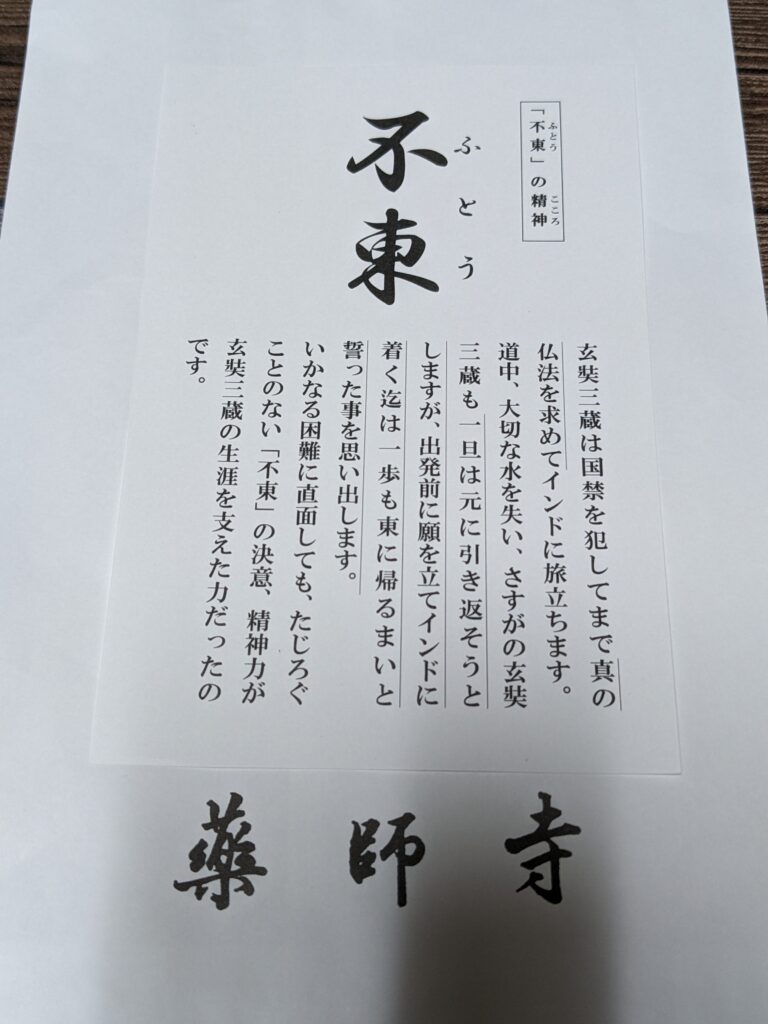 「不東」の精神
ふとう
こころ
不東
ふとう
玄奘三蔵は国禁を犯してまで真の
仏法を求めてインドに旅立ちます。
道中、大切な水を失い、さすがの玄奘
三蔵も一旦は元に引き返そうと
しますが、出発前に願を立てインドに
着く迄は一歩も東に帰るまいと
誓った事を思い出します。
いかなる困難に直面しても、たじろぐ
ことのない「不東」の決意、精神力が
玄奘三蔵の生涯を支えた力だったの
です。
藥師寺